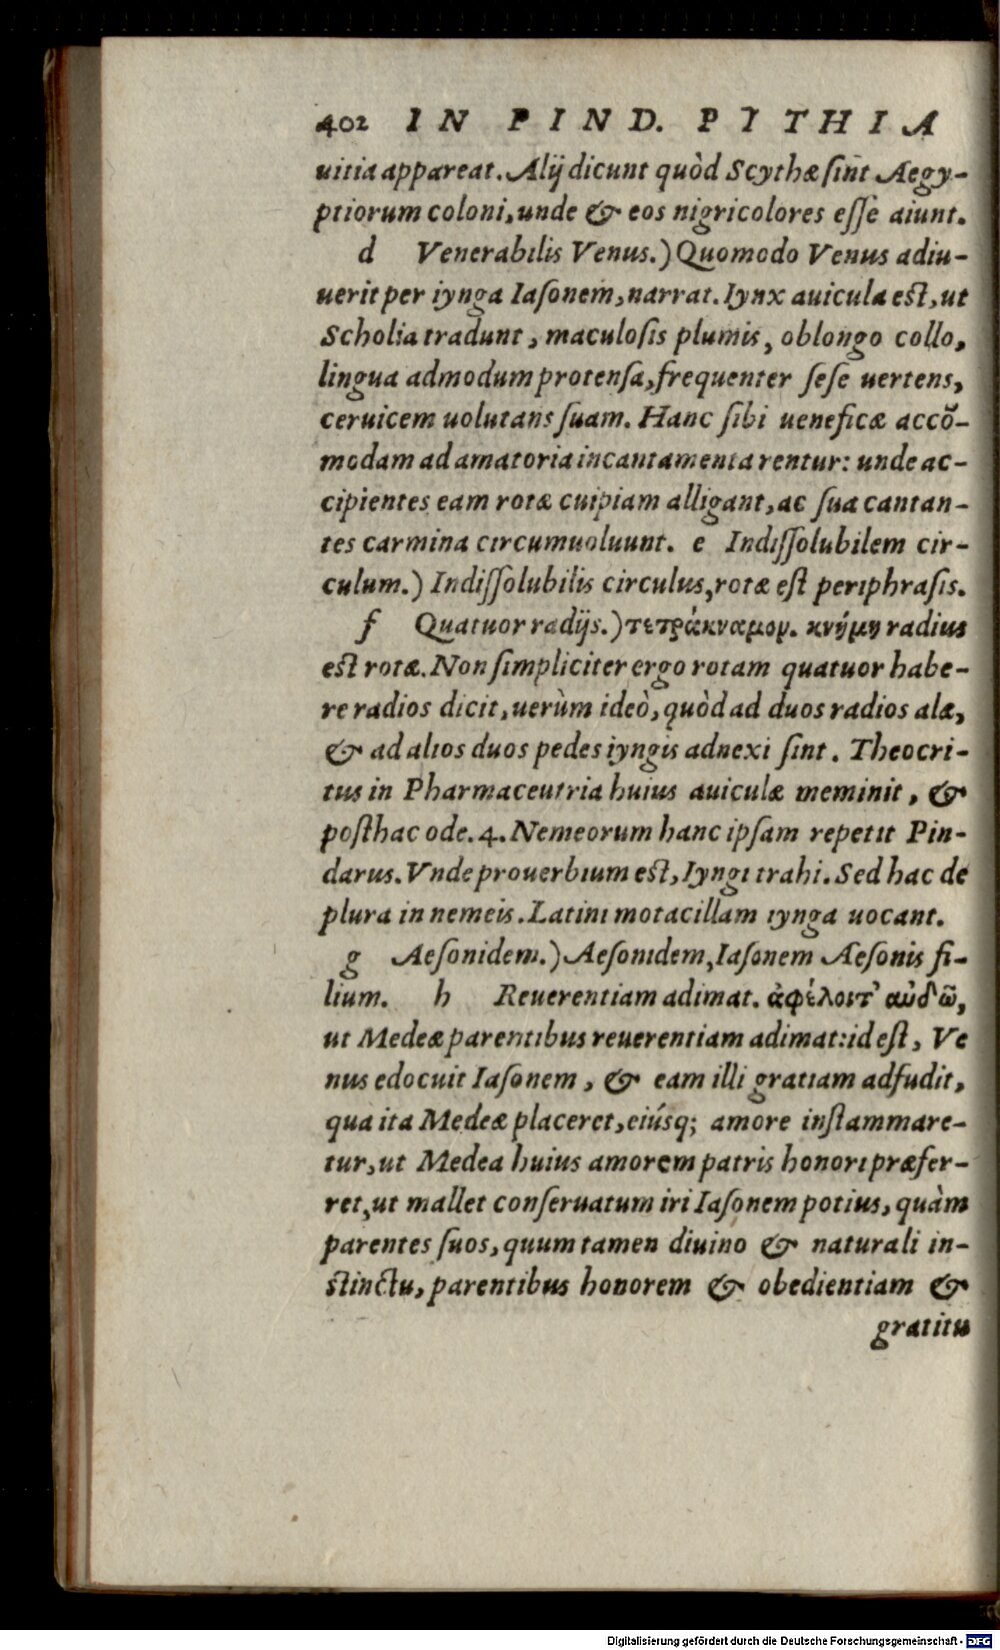 402 IN PIND. PYTHIA
uitia appareat. Alij dicunt quòd Scythæ ſint Aegy-
ptiorum coloni, unde & eos nigricolores eſſe aiunt.
d Venerabilis Venus.) Quomodo Venus adiu-
uerit per iynga Iaſonem, narrat. Iynx auicula eſt, ut
Scholia tradunt, maculoſis plumis, oblongo collo,
lingua admodum protenſa, frequenter ſeſe uertens,
ceruicem uolutans ſuam. Hanc ſibi ueneficæ accõ-
modam ad amatoria incantamenta rentur: unde ac-
cipientes eam rotæ cuipiam alligant, ac ſua cantan-
tes carmina circumuoluunt. e Indiſſolubilem cir-
culum.) Indiſſolubilis circulus, rotæ eſt periphraſis.
f Quatuor radijs.) τετράκναμον. κνήμη radius
eſt rotæ. Non ſimpliciter ergo rotam quatuor habe-
re radios dicit, uerùm ideò, quòd ad duos radios alæ,
& ad alios duos pedes iyngis adnexi ſint. Theocri-
tus in Pharmaceutria huius auiculæ meminit, &
poſthac ode. 4. Nemeorum hanc ipſam repetit Pin-
darus. Vnde prouerbium eſt, Iyngi trahi. Sed hac de
plura in nemeis. Latini motacillam iynga uocant.
g Aeſonidem.) Aeſonidem, Iaſonem Aeſonis fi-
lium. h Reuerentiam adimat. ἀφέλοιτ' αἰδῶ,
ut Medeæ parentibus reuerentiam adimat: id eſt, Ve
nus edocuit Iaſonem, & eam illi gratiam adfudit,
qua ita Medeæ placeret, eiúsq; amore inflammare-
tur, ut Medea huius amorem patris honori præfer-
ret, ut mallet conſeruatum iri Iaſonem potius, quàm
parentes ſuos, quum tamen diuino & naturali in-
ſtinctu, parentibus honorem & obedientiam &
gratitu
Digitalisierung gefördert durch die Deutsche Forschungsgemeinschaft - DFG